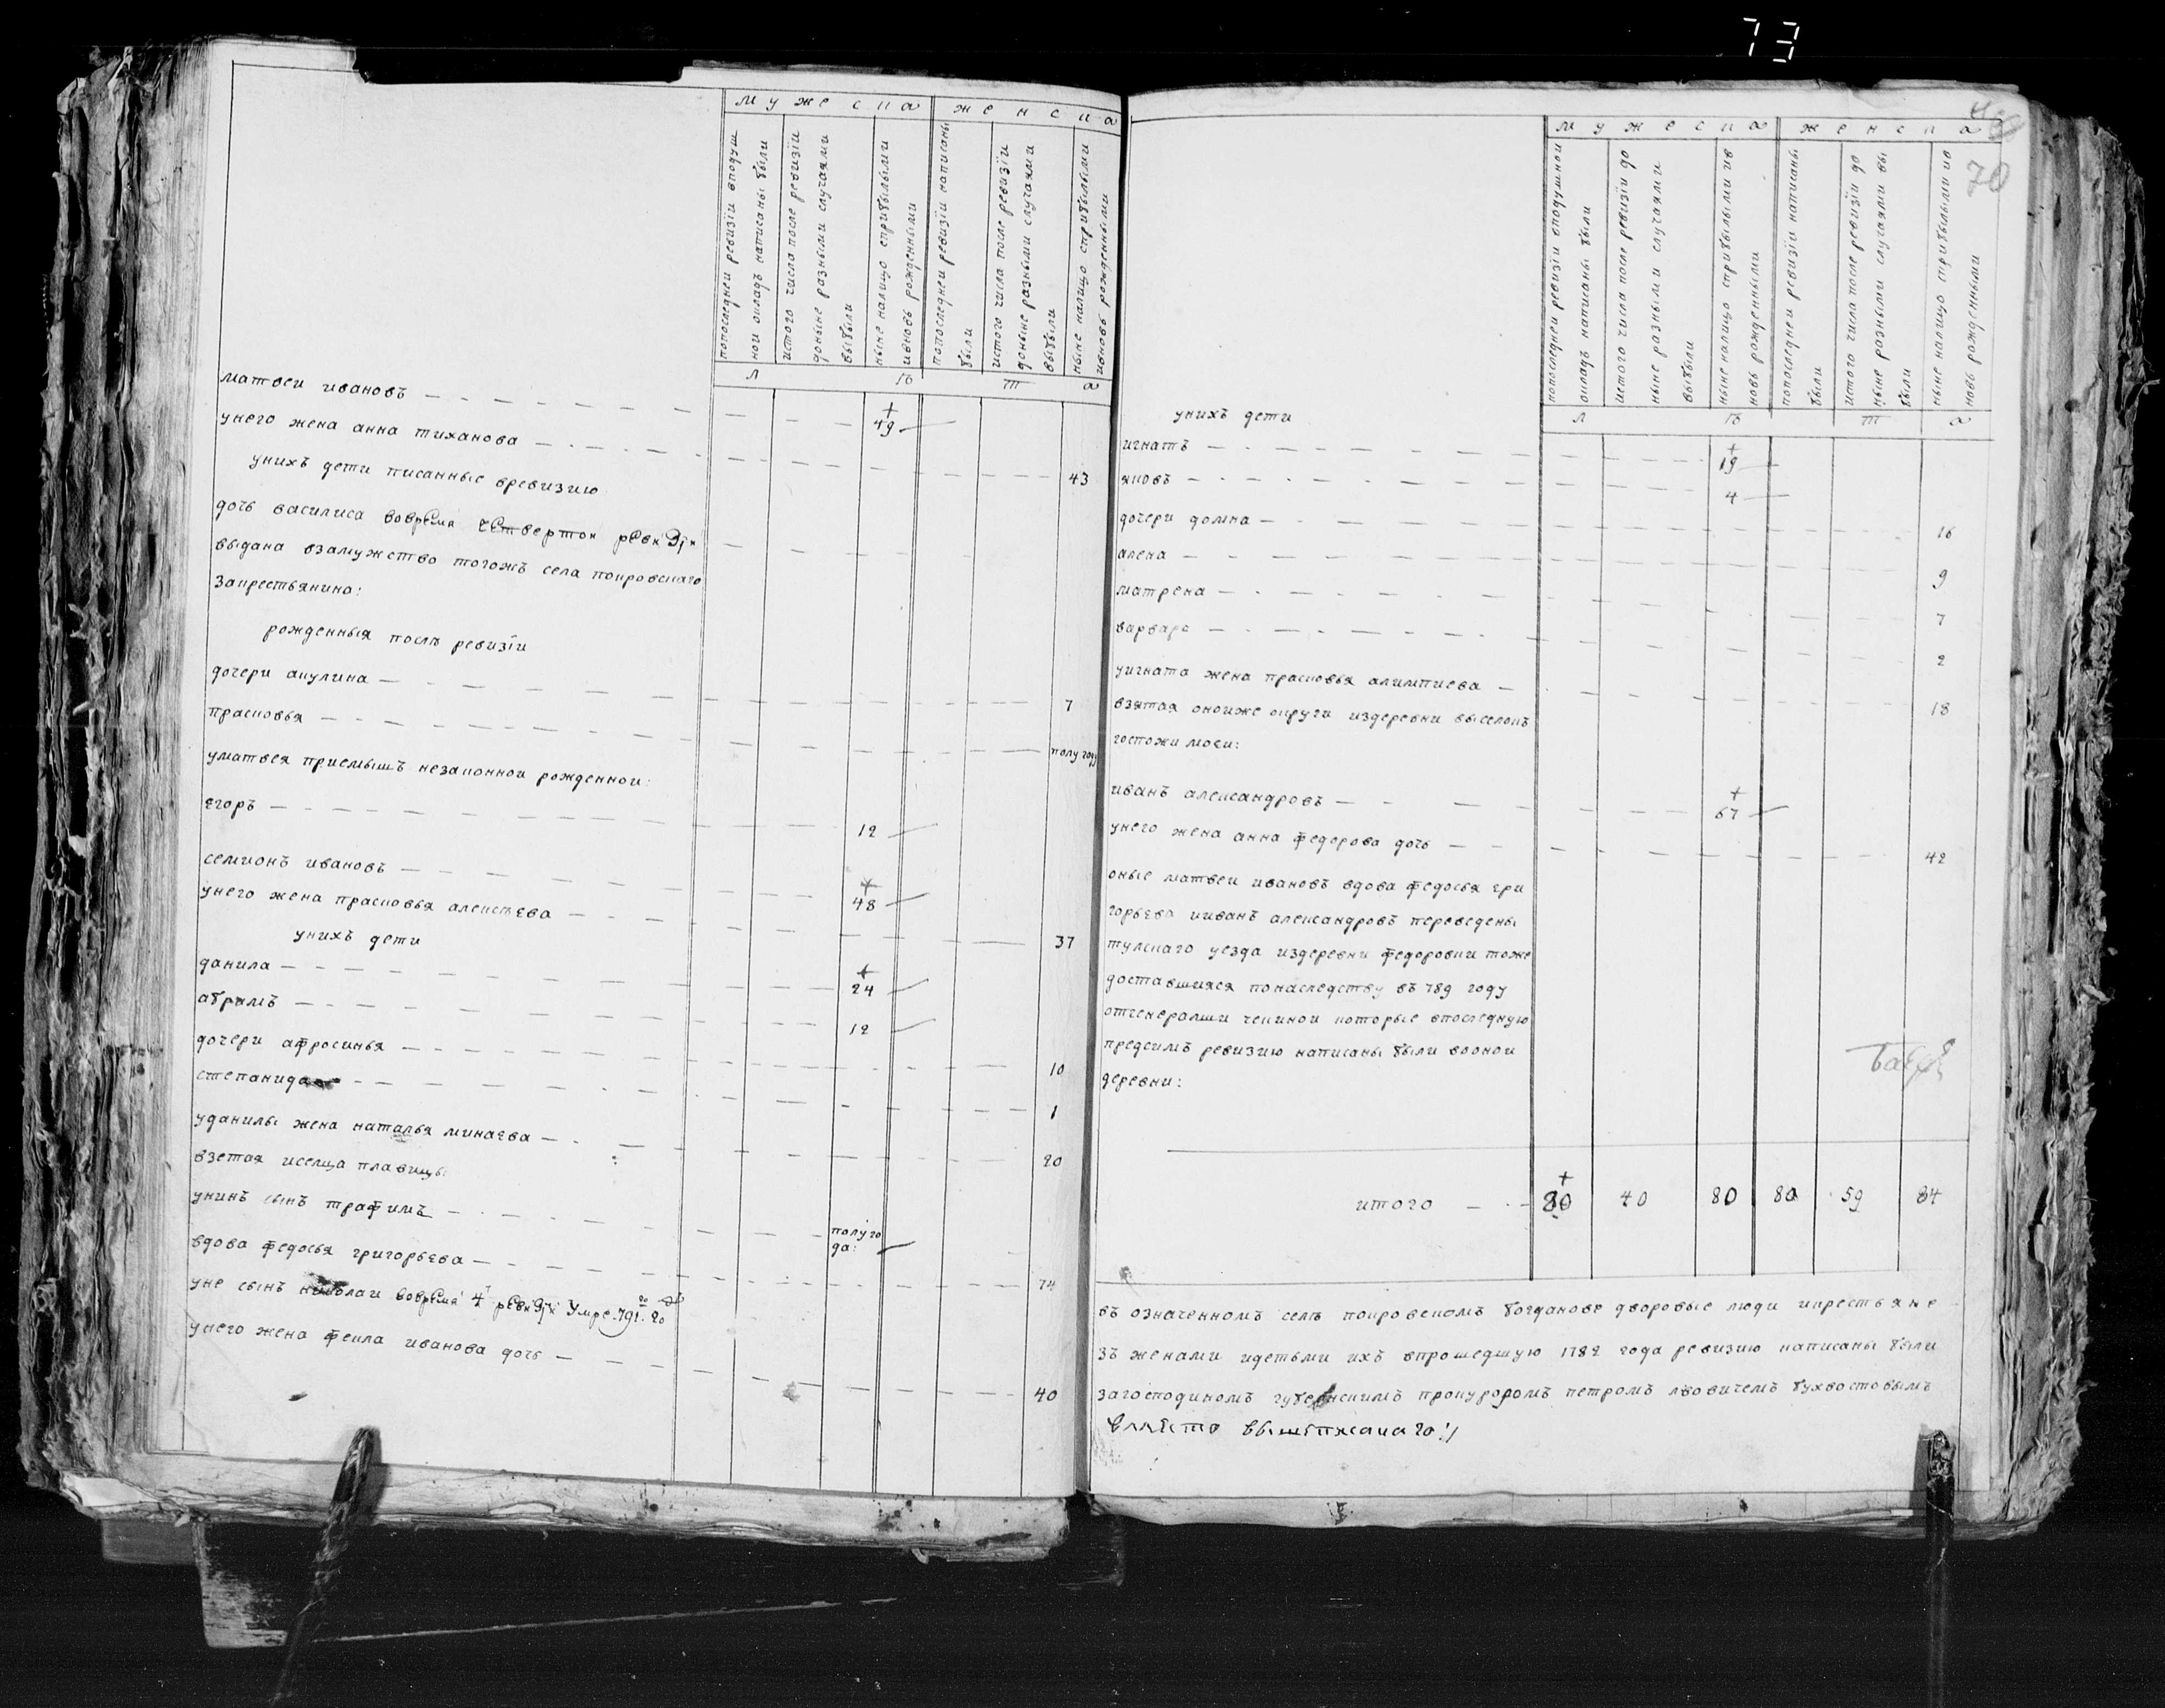 73
мужеска женска
попоследней ревизїи вподуш
ной окладъ написаны были
истого числа после ревизїи
доныне разными случаями
выбыли
ныне налицо сприбылыми
ивновь рожденными
попоследней ревизїи написаны
были
истого числа после ревизїи
доныне разными случаями
выбыли
ныне налицо сприбылыми
ивновь рожденными
лѣта
матвей ивановъ 49
унего жена анна тиханова 43
унихъ дети писанные вревизию
дочь василиса вовремя четвертои ревизїи
выдана взамужство тогожъ села покровскаго
закрестьянина:
рожденныя послѣ ревизїи
дочери акулина 7
прасковья полугоду
уматвея приемышъ незаконнои рожденнои:
егоръ 12
семионъ ивановъ 48
унего жена прасковья алексѣева 37
унихъ дети
данила 24
абрамъ 12
дочери афросинья 10
степанида 1
уданилы жена наталья минаева 20
взетая иселца плавицы:
унихъ сынъ трафимъ полуго
да:
вдова федосья григорьева 74
уне сынъ николаи вовремя 4й ревизїи умре. 791. го
унего жена фекла иванова дочь 40
70
мужеска женска
попоследней ревизїи вподушной
окладъ написаны были
истого числа после ревизїи до
ныне разными случаями
выбыли
ныне налицо сприбылыми ив
новь рожденными
попоследней ревизїи написаны
были
истого числа после ревизїи до
ныне разными случаями вы
были
ныне налицо сприбылыми ив
новь рожденными
лѣта
унихъ дети
игнатъ 19
яковъ 4
дочери домна 16
алена 9
матрена 7
варвара 2
уигната жена прасковья алимпиева 18
взятая онойже округи издеревни выселокъ
госпожи моси:
иванъ александровъ 67
унего жена анна федорова дочь 42
оные матвеи ивановъ вдова федосья гри
горьева ииванъ александровъ переведены
тулскаго уезда издеревни федоровки тоже
доставшияся понаследству въ 789 году
отгенералши чекиной которые впоследнюю
предсимъ ревизию написаны были воонои
деревни:
итого 80 40 80 80 59 84
въ означенномъ селѣ покровскомъ богданове дворовые люди икрестьяне
зъ женами идетьми ихъ впрошедшую 1782 года ревизию написаны были
загосподиномъ губернскимъ прокуроромъ петромъ лвовичемъ бухвостовымъ
вмѣсто вышѣписанаго